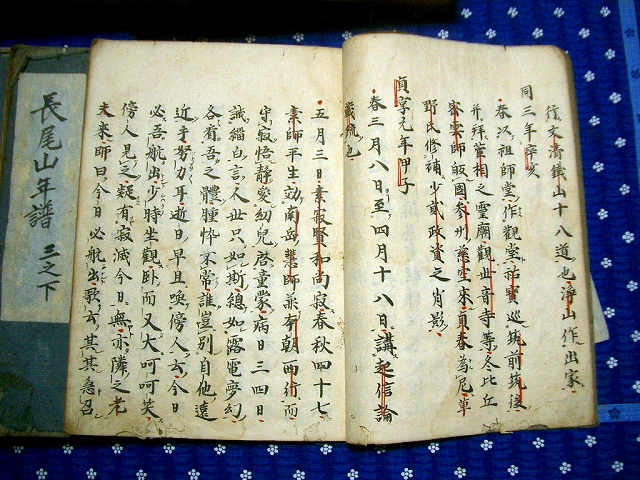 往文清鐵山十八道也淨山作出家
同三年辛亥
春以祖師堂作觀堂祐寶巡筑前筑後
并拜菅相之靈廟觀世音寺等今比丘
密雲師皈國參州慈雲來貞春為尼草
野氏修補少貳政資之肖影
貞享元年甲子
春三月八日至四月十八日講起信論
義統也
五月三日素寂賢和尚寂春秋四十七
素師平生効南岳慧師兼本朝西行而
守寂悟靜愛幼兒啓童蒙病日三四日
誡緇白言人世只如斯總如露電夢幻
各看吾之體腫悴不常誰豈別自他遠
近乎努力耳逝日早旦喚傍人云今日
必吾航出少時坐觀臥而又大呵呵笑
傍人見之疑有寂滅今日無亦隣之老
夫來師曰今日必航出歌云其其急召
長尾山年譜 三之下